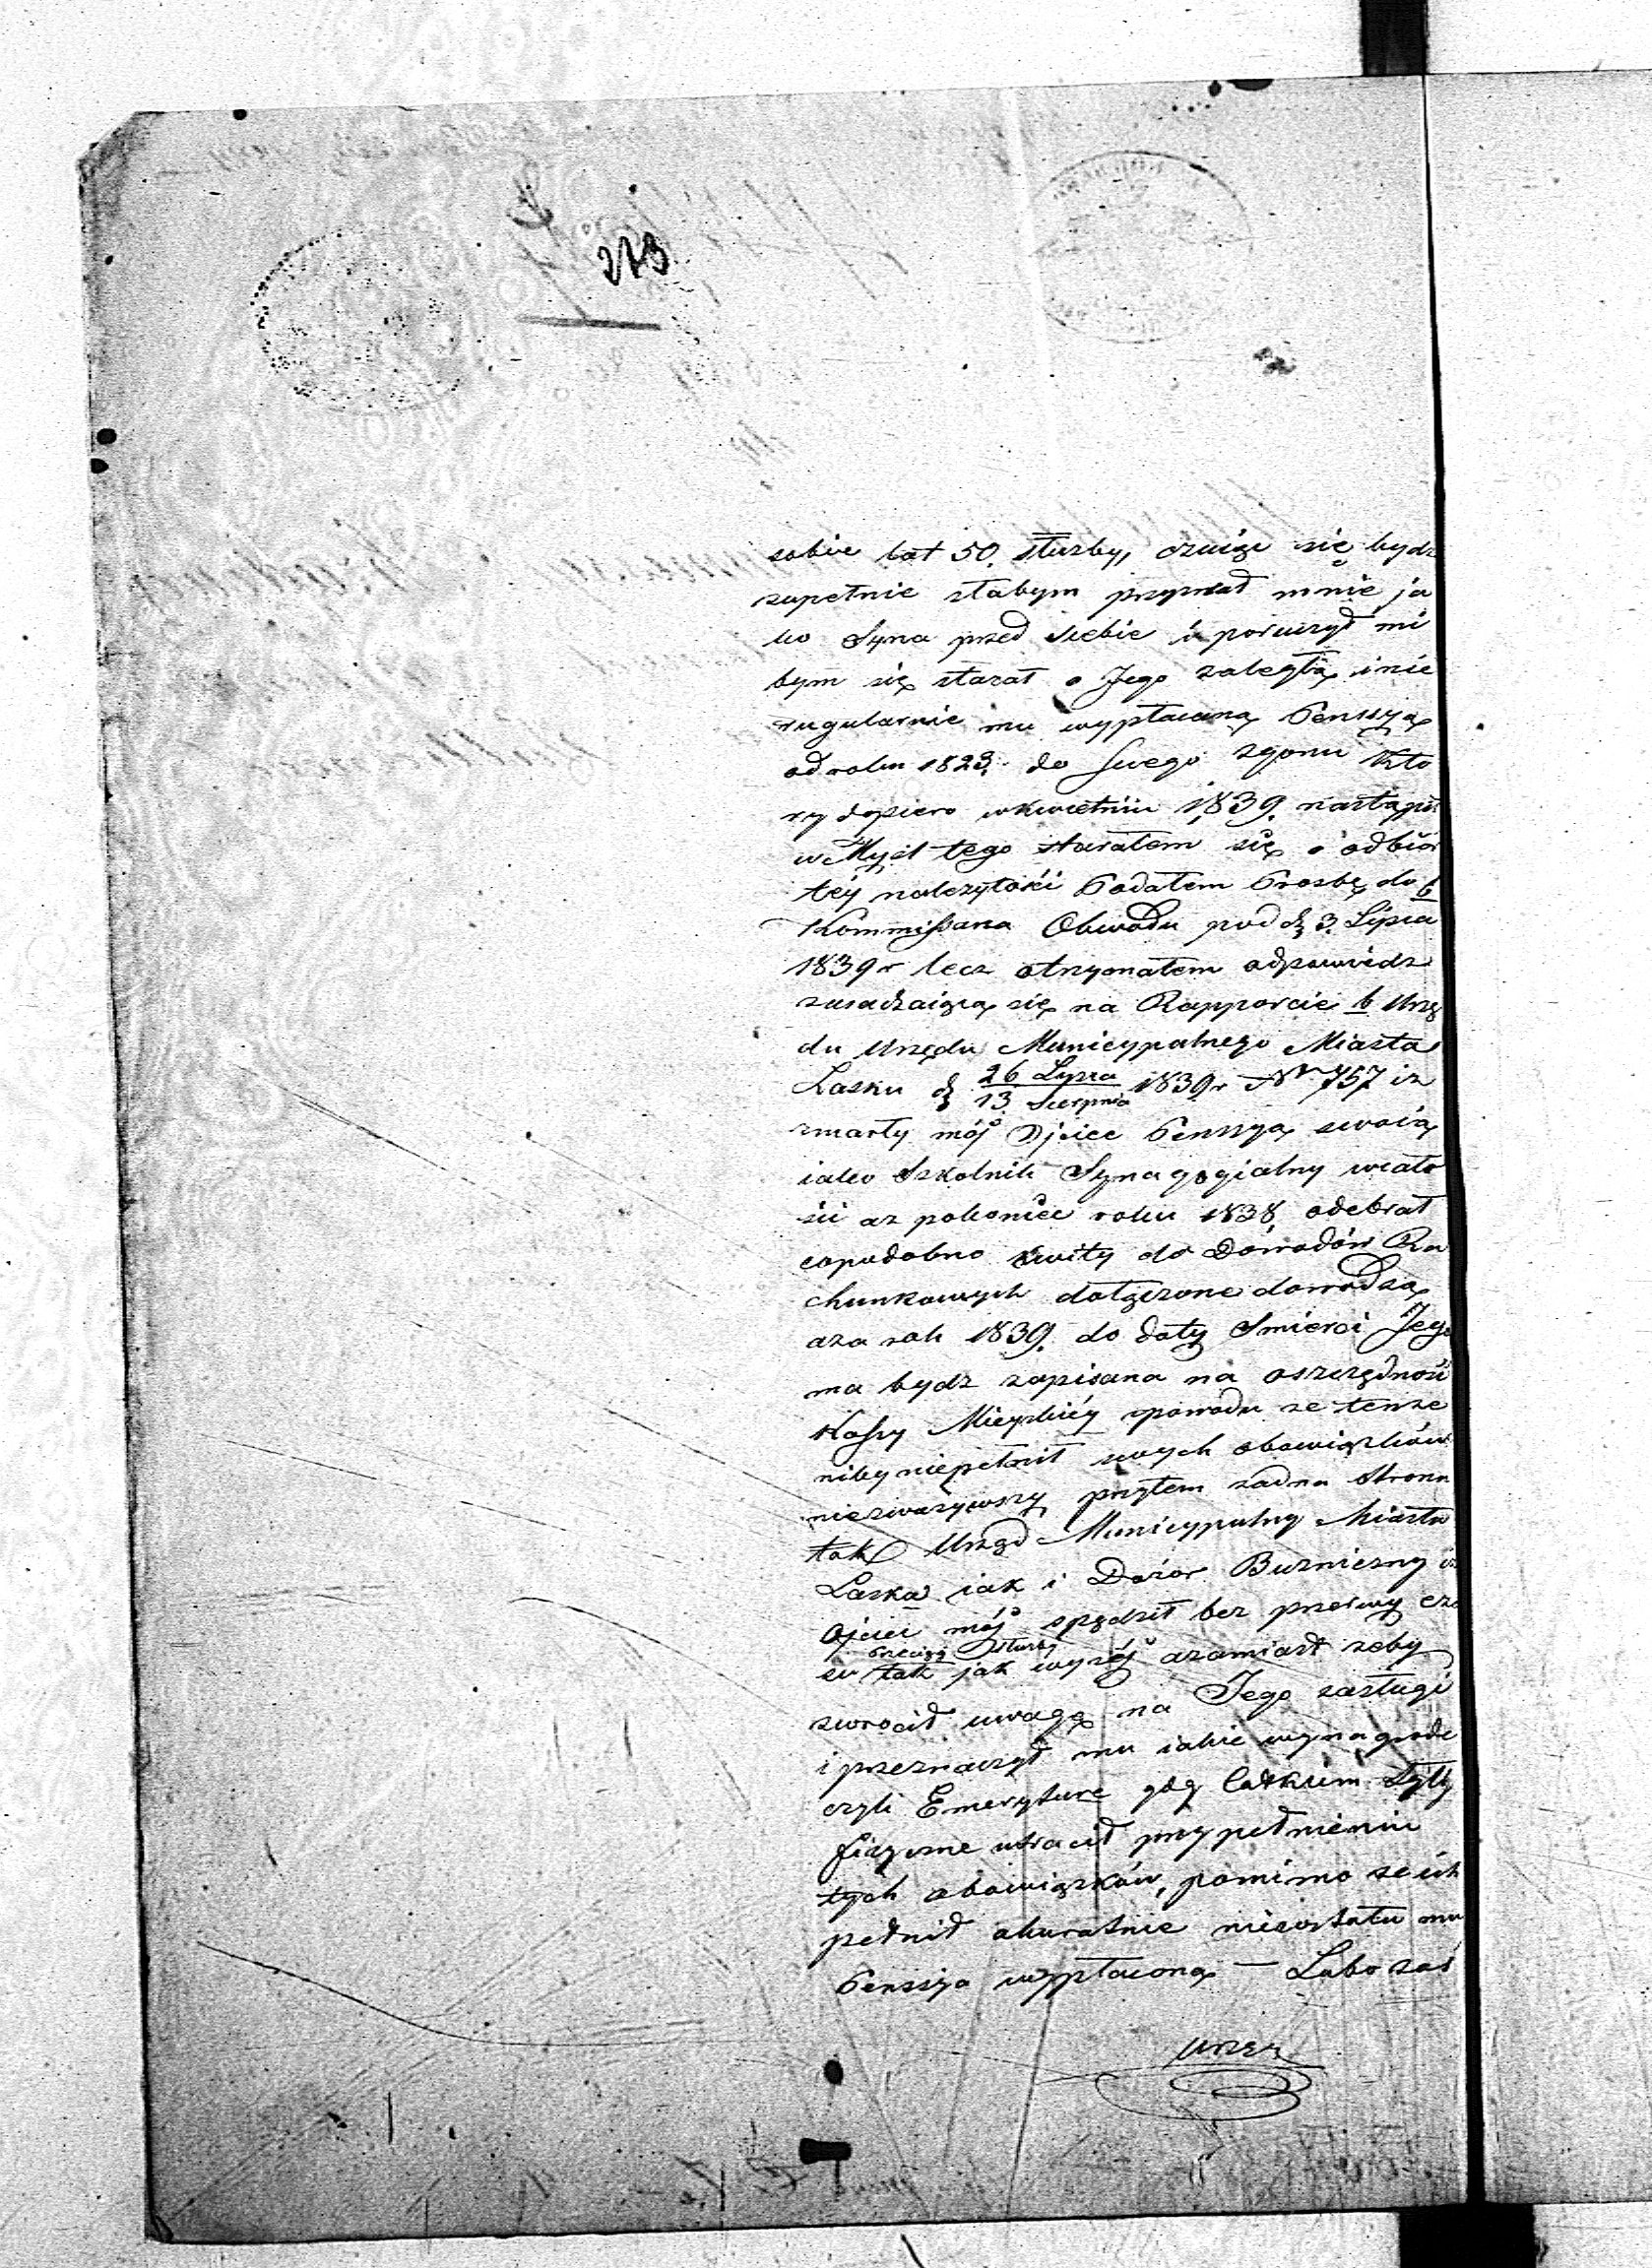 273
sobie lat 50. służby, czuiąc się bydz
zupełnie słabym przyzwał mnie ja
ko Syna przed siebie i poruczył mi
bym się starał o Jego zaległą i nie
rugularnie mu wypłaconą Penssyą
od roku 1823. do swego zgonu któ
ry dopiero w kwietniu 1839. nastąpił
w Myśl tego starałem się o odbiór
téy należytości Podałem Prosbę do
Kommissarza Obwodu pod d. 3. Lipca
1839 r lecz otrzymałem odpowiedz
zasadzaiącą się na Rapporcie b Urzę
du Urzędu Municypalnego Miasta
Łasku d. 26 Lypca / 13 Sierpnia 1839 r N 757 iz
zmarły mój Ojciec Penssyą swoią
iako Szkolnik Synagogialny w cało
ści az pokoniec roku 1838 odebrał
copodobno kwity do Dowodów Ra
chunkowych dołączone dowodzą
aza rok 1839. do daty Smierci Jego
ma bydz zapisana na oszczędność
Kassy Mieyskiéy zpowodu ze tenze
niby niepełnił swych obowiązków
niezwazywszy przytem zadna Strona
tak Urząd Municypalny Miasta
Łaska iak i Dozór Bużniczny iz
Ojciec mój spędził bez przerwy cza
przeciąg służby
su tak jak wyżéj azamiast zeby
zwrócił uwagę na Jego zasługi
i przeznaczył mu iakie wynagrodz
czyli Emeryture gdy całkiem Siły
fizyczne utracił przy pełnieniu
tych obowiązków, pomimo ze ich
pełnił akuratnie niezostała mu
Penssya wypłaconą — Lubo zaś
Urząd